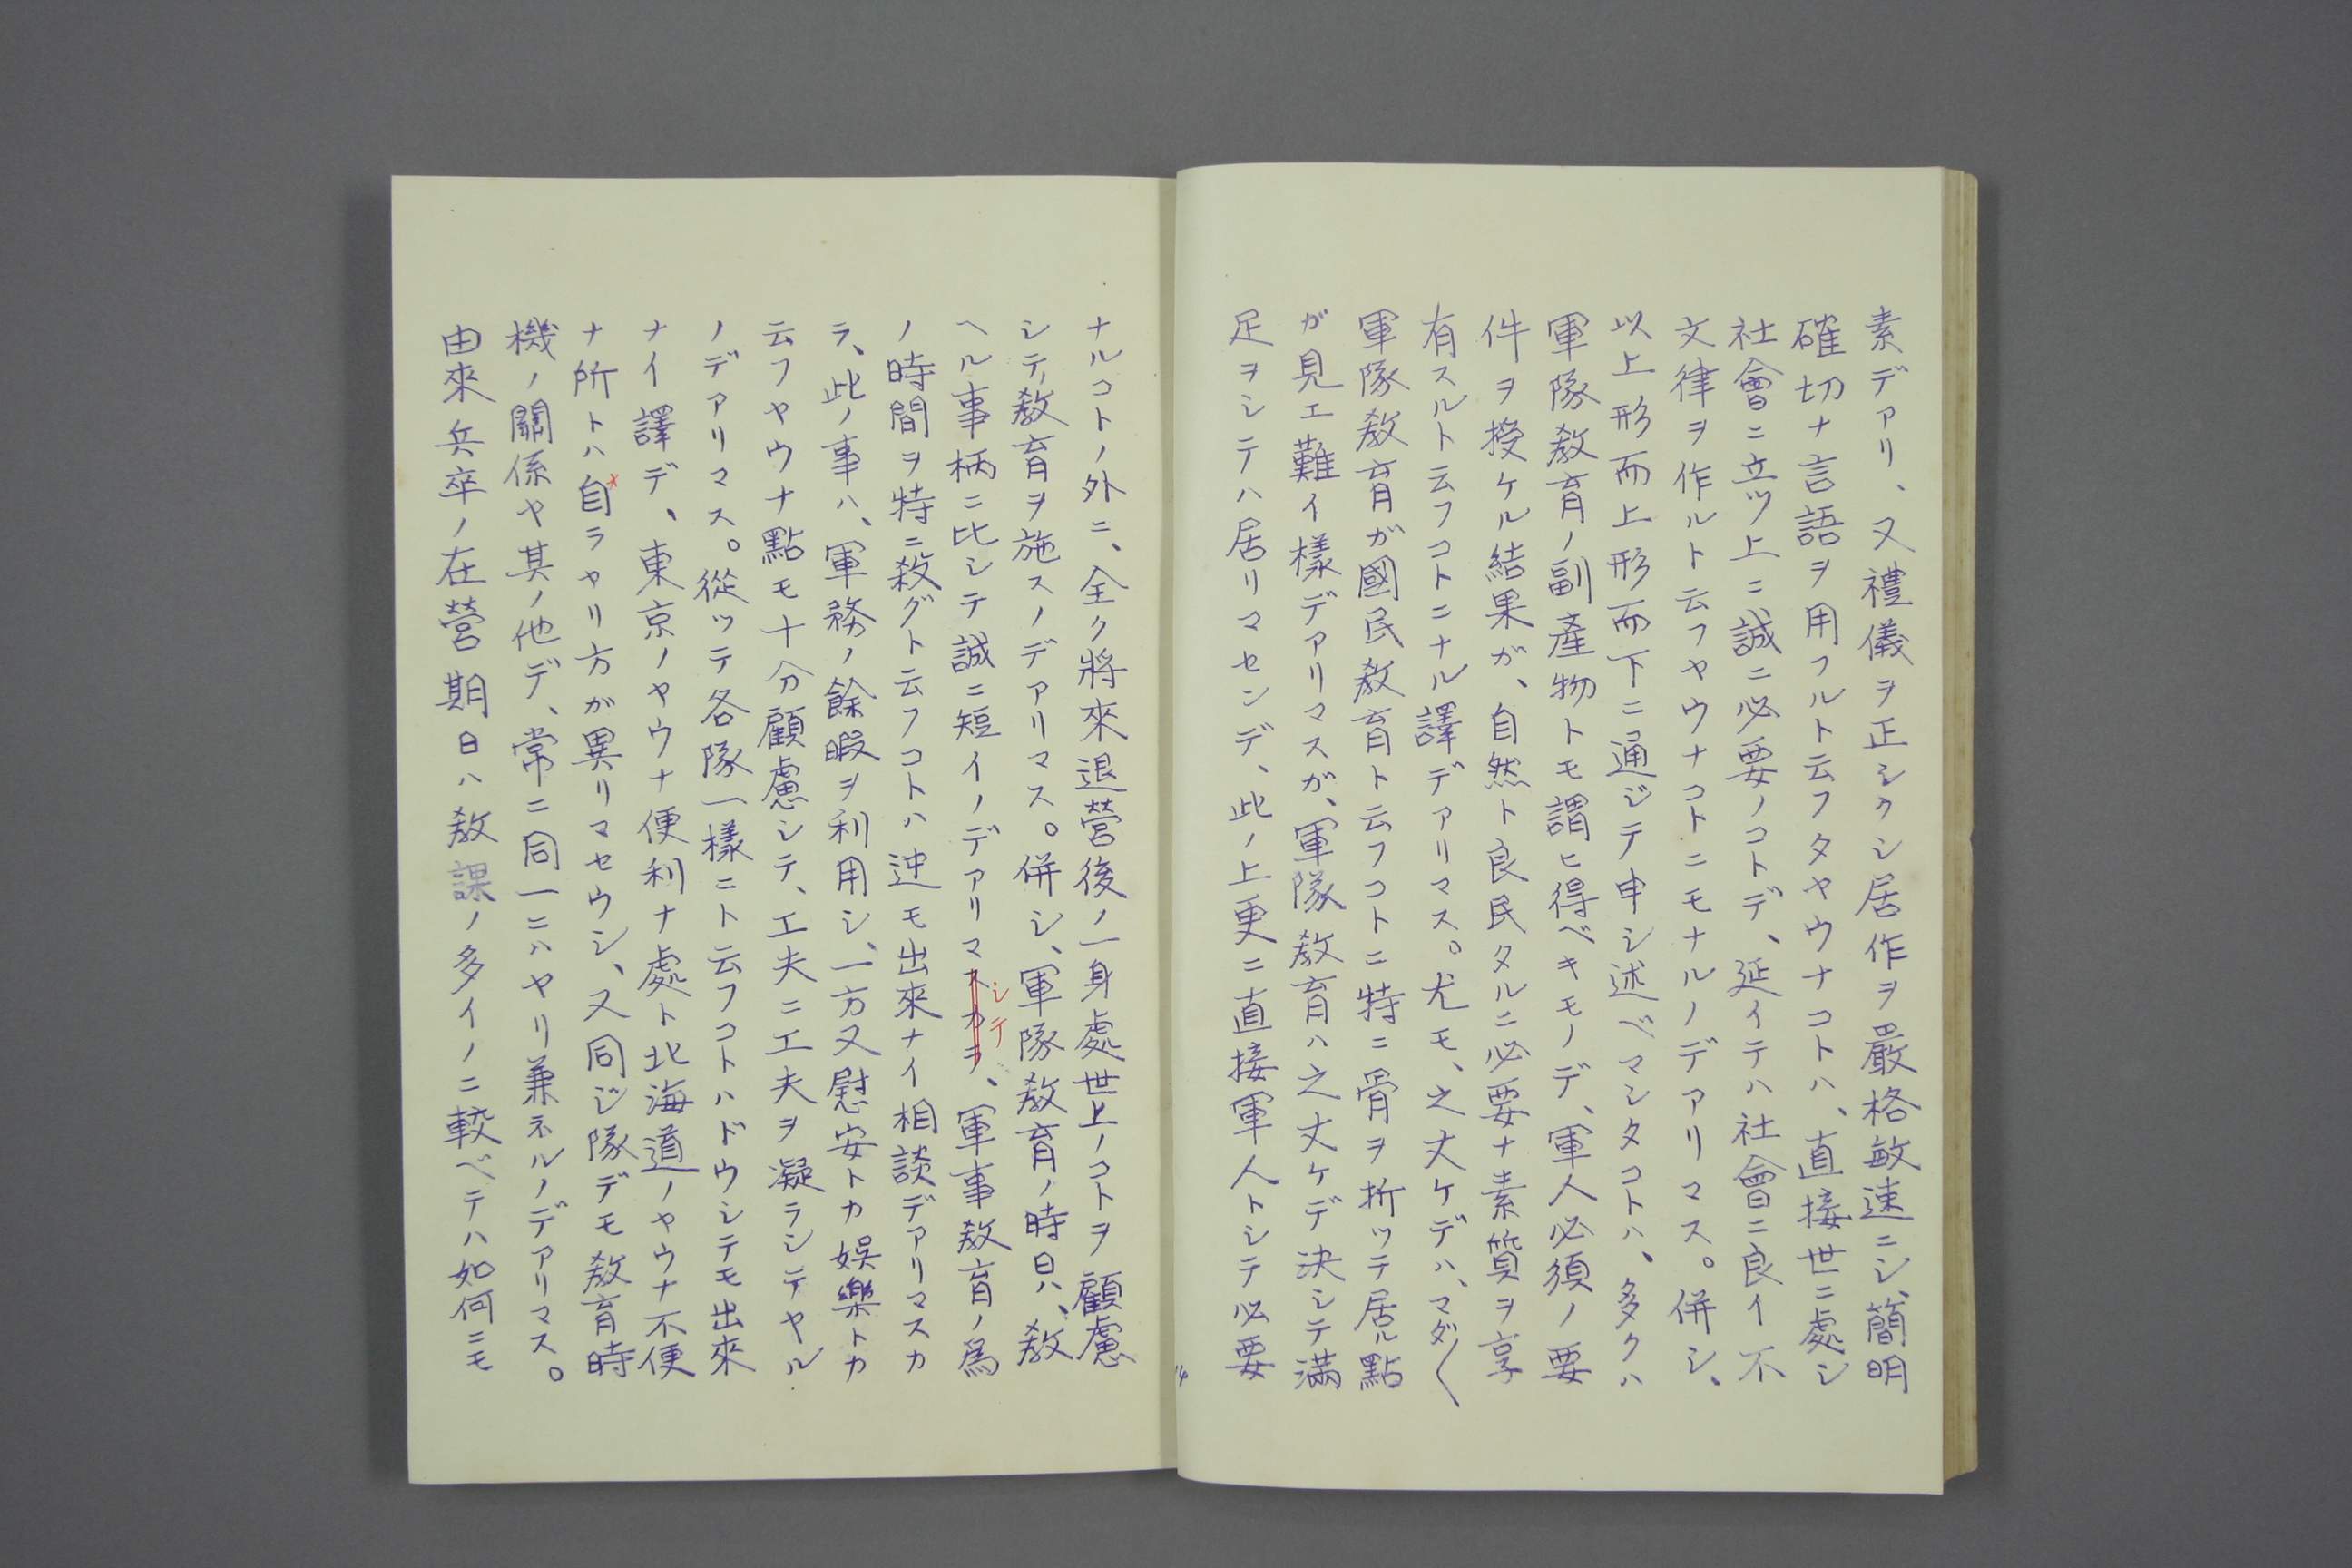 素デアリ、又禮儀ヲ正シクシ居作ヲ嚴格敏速ニシ、簡明
確切ナ言語ヲ用フルト云フタヤウナコトハ、直接世ニ處シ
社會ニ立ツ上ニ誠ニ必要ノコトデ、延イテハ社會ニ良イ不
文律ヲ作ルト云フヤウナコトニモナルノデアリマス。併シ、
以上形而上形而下ニ通ジテ申シ述ベマシタコトハ、多クハ
軍隊敎育ノ副產物トモ謂ヒ得ベキモノデ、軍人必須ノ要
件ヲ授ケル結果が、自然ト良民タルニ必要ナ素質ヲ享
有スルト云フコトニナル譯デアリマス。尤モ、之丈ケデハ、マダ〱
軍隊敎育が國民敎育ト云フコトニ特ニ骨ヲ折ッテ居ル點
が見エ難イ樣デアリマスが、軍隊敎育ハ之丈ケデ決シテ滿
足ヲシテハ居リマセンデ、此ノ上更ニ直接軍人トシテ必要
ナルコトノ外ニ、全ク將來退營後ノ一身處世上ノコトヲ顧慮
シテ敎育ヲ施スノデアリマス。併シ、軍隊敎育ノ時日ハ、敎
ヘル事柄ニ比シテ誠ニ短イノデアリマスカラシテ、軍事敎育ノ爲
ノ時間ヲ特ニ殺グト云フコトハ迚モ出來ナイ相談デアリマスカ
ラ、此ノ事ハ、軍務ノ餘暇ヲ利用シ、一方又慰安トカ娯樂トカ
云フヤウナ點モ十分顧慮シテ、工夫ニ工夫ヲ凝ラシテヤル
ノデアリマス。從ッテ各隊一樣ニト云フコトハドウシテモ出來
ナイ譯デ、東京ノヤウナ便利ナ處ト北海道ノヤウナ不便
ナ所トハ自ラヤリ方が異リマセウシ、又同ジ隊デモ敎育時
機ノ關係ヤ其ノ他デ、常ニ同一ニハヤリ兼ネルノデアリマス。
由來兵卒ノ在營期日ハ敎課ノ多イノニ較ベテハ如何ニモ